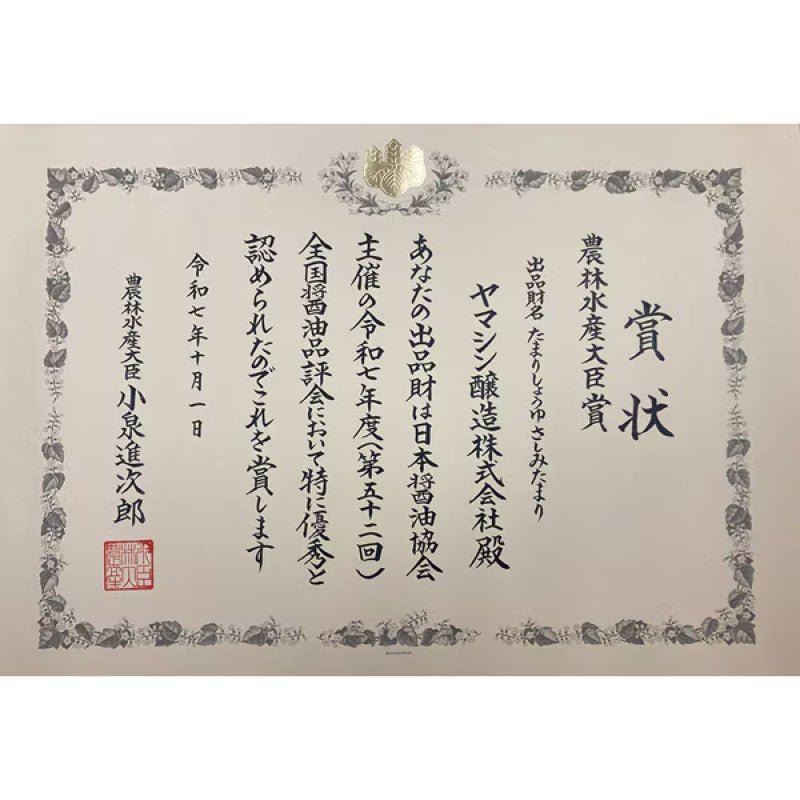 賞状
農林水産大臣賞
出品財名 たまりしょうゆ さしみたまり
ヤマシン醸造株式会社 殿
あなたの出品財は日本醤油協会
主催の令和七年度(第五十二回)
全国醤油品評会において特に優秀と
認められたのでこれを賞します
令和七年十月一日
農林水産大臣 小泉進次郎